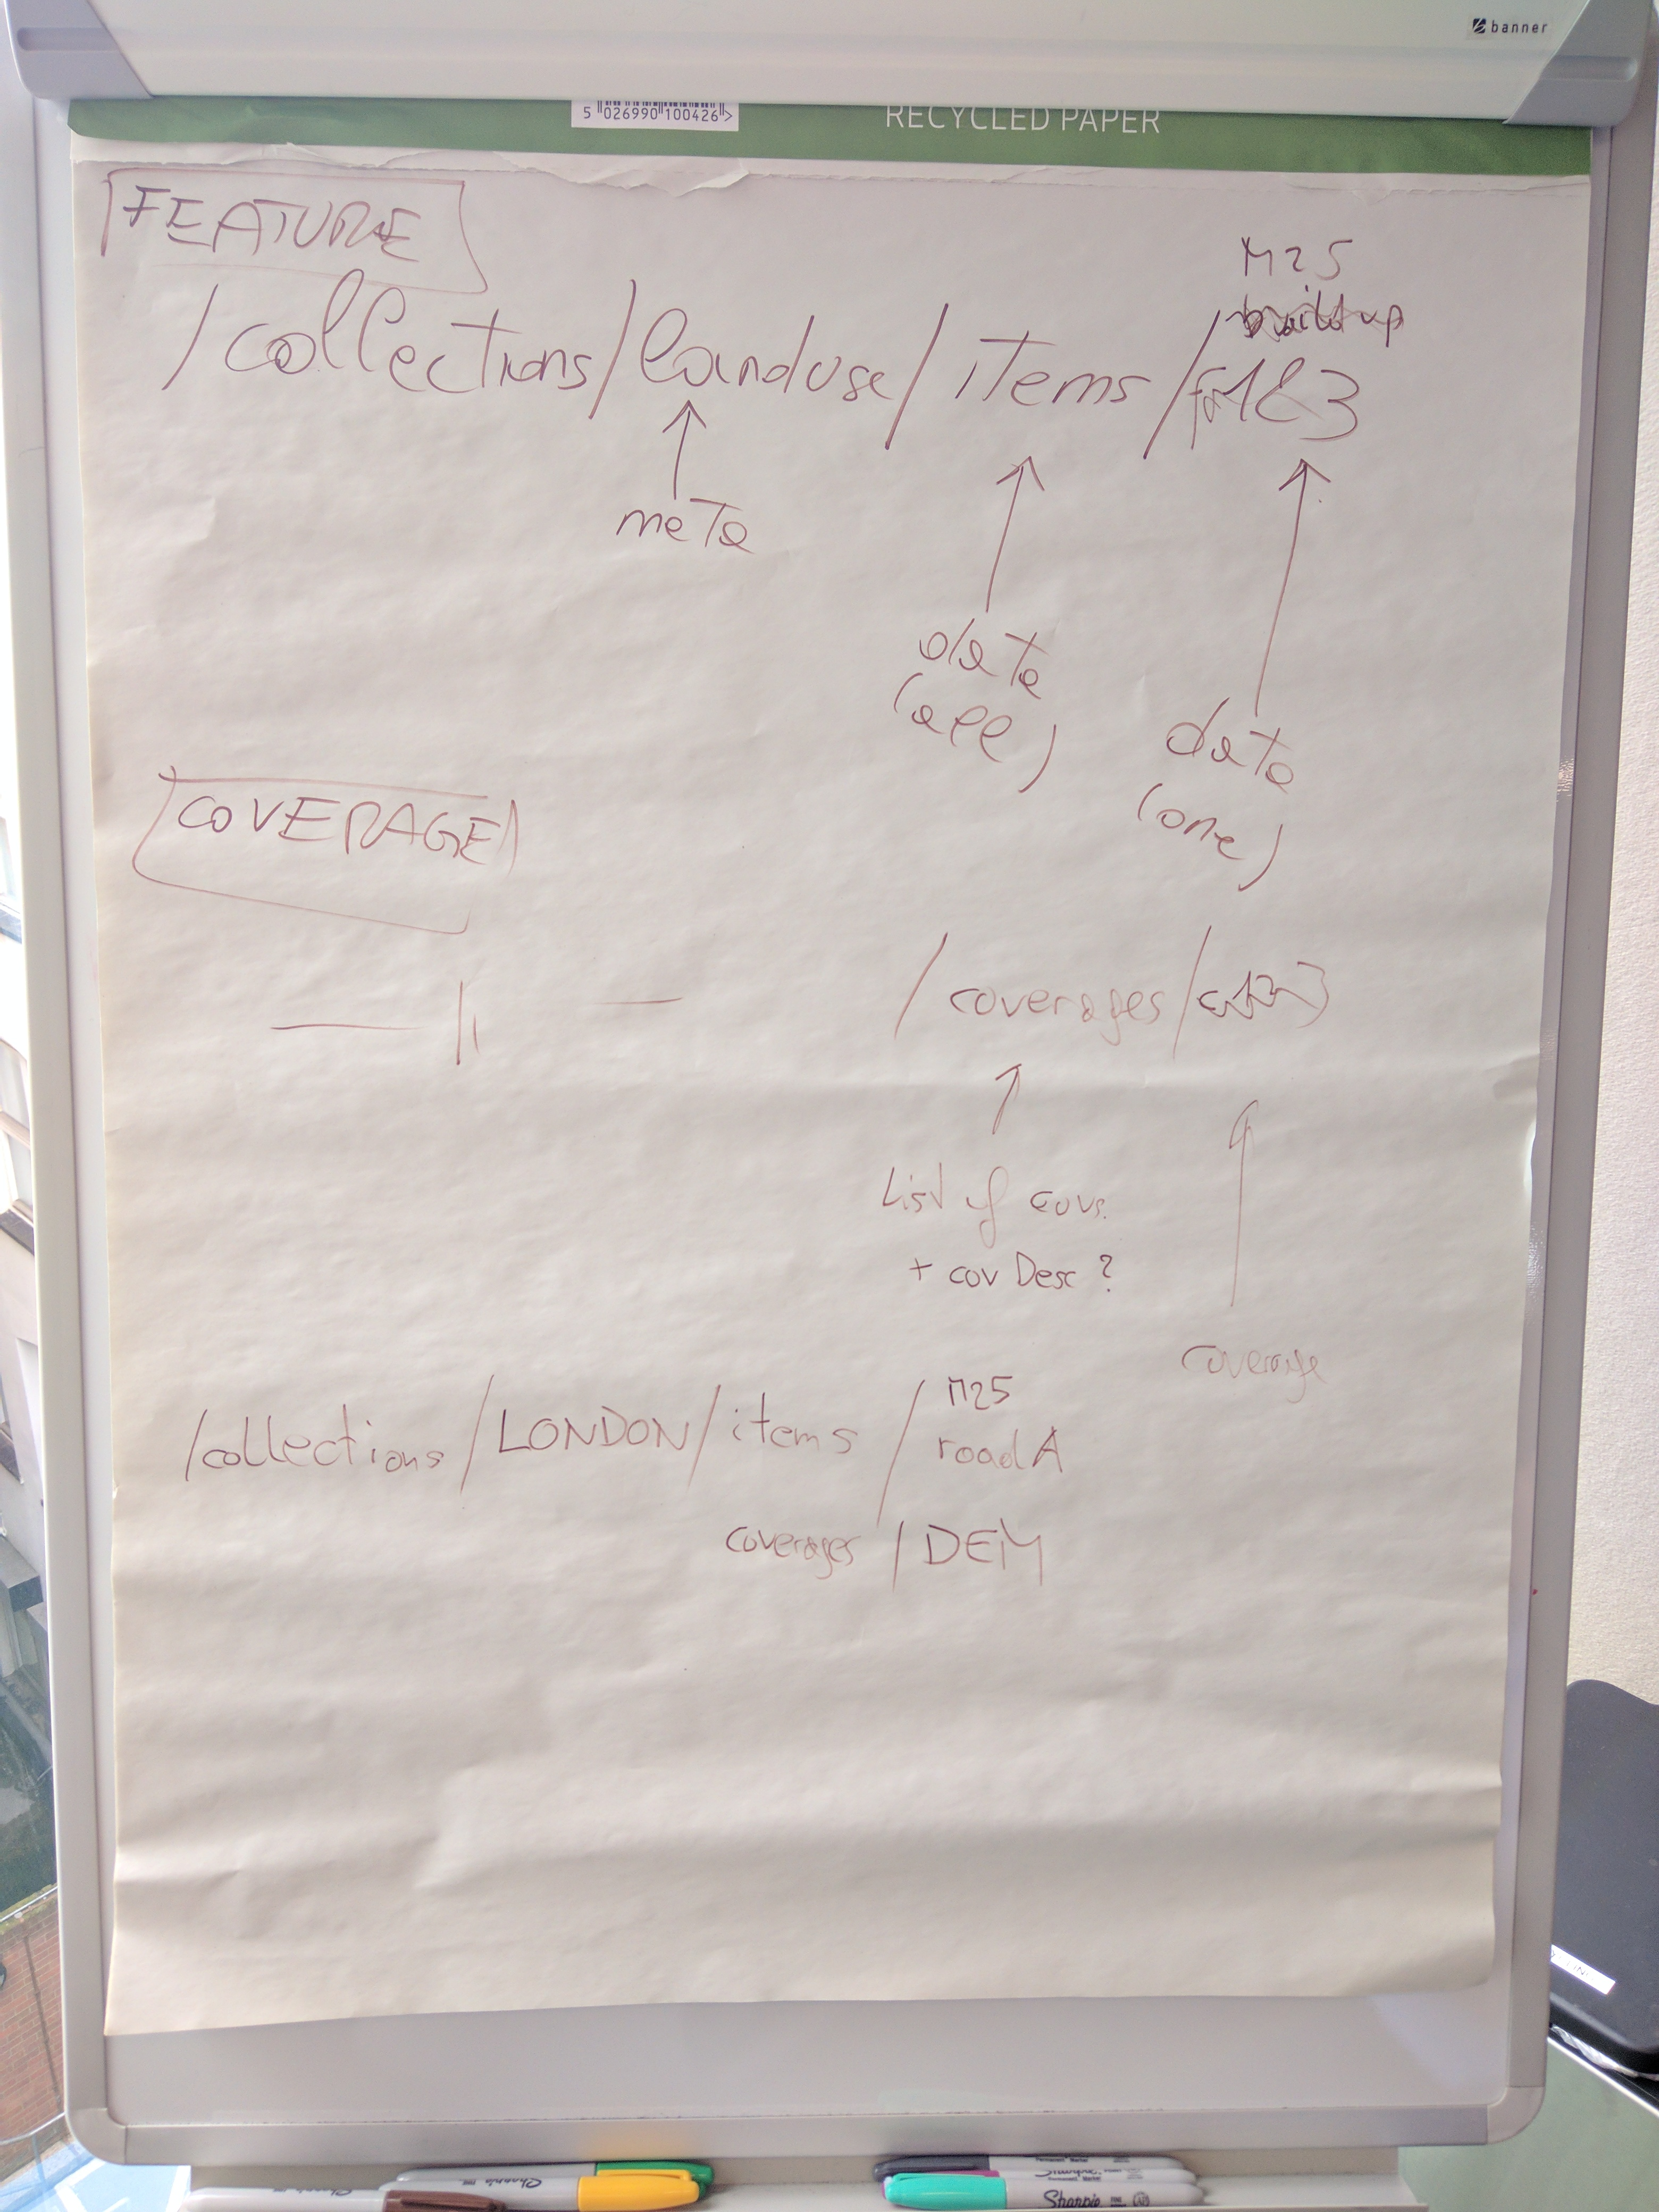 banner
5 026990 100426 >
RECYCLED PAPER
FEATURE
M25
/collections/landuse/items/
meta
data
(all)
data
(one)
COVERAGE
— || —
/coverages/
List of covs.
+ cov Desc ?
coverage
M25
/collections/LONDON/items/roadA
coverages/DEM
Sharpie
Sharpie
Sharpie